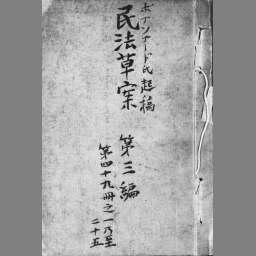 ボアソナード氏起稿
民法草案
第三編
第四十九冊之一乃至
二十五